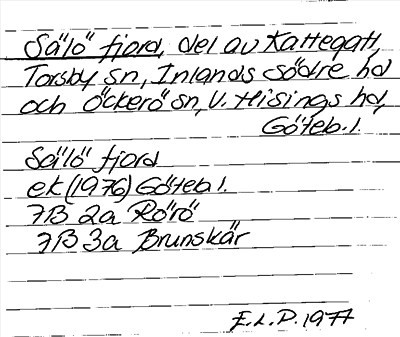 Sälö fjord, del av Kattegatt,
Torsby sn, Inlands Södre hd
och Öckerö sn, V. Hisings hd,
Göteb. l.
Sälö fjord
ek (1976) Göteb l.
7B 2a Rörö
7B 3a Brunskär
E.L.P. 1977